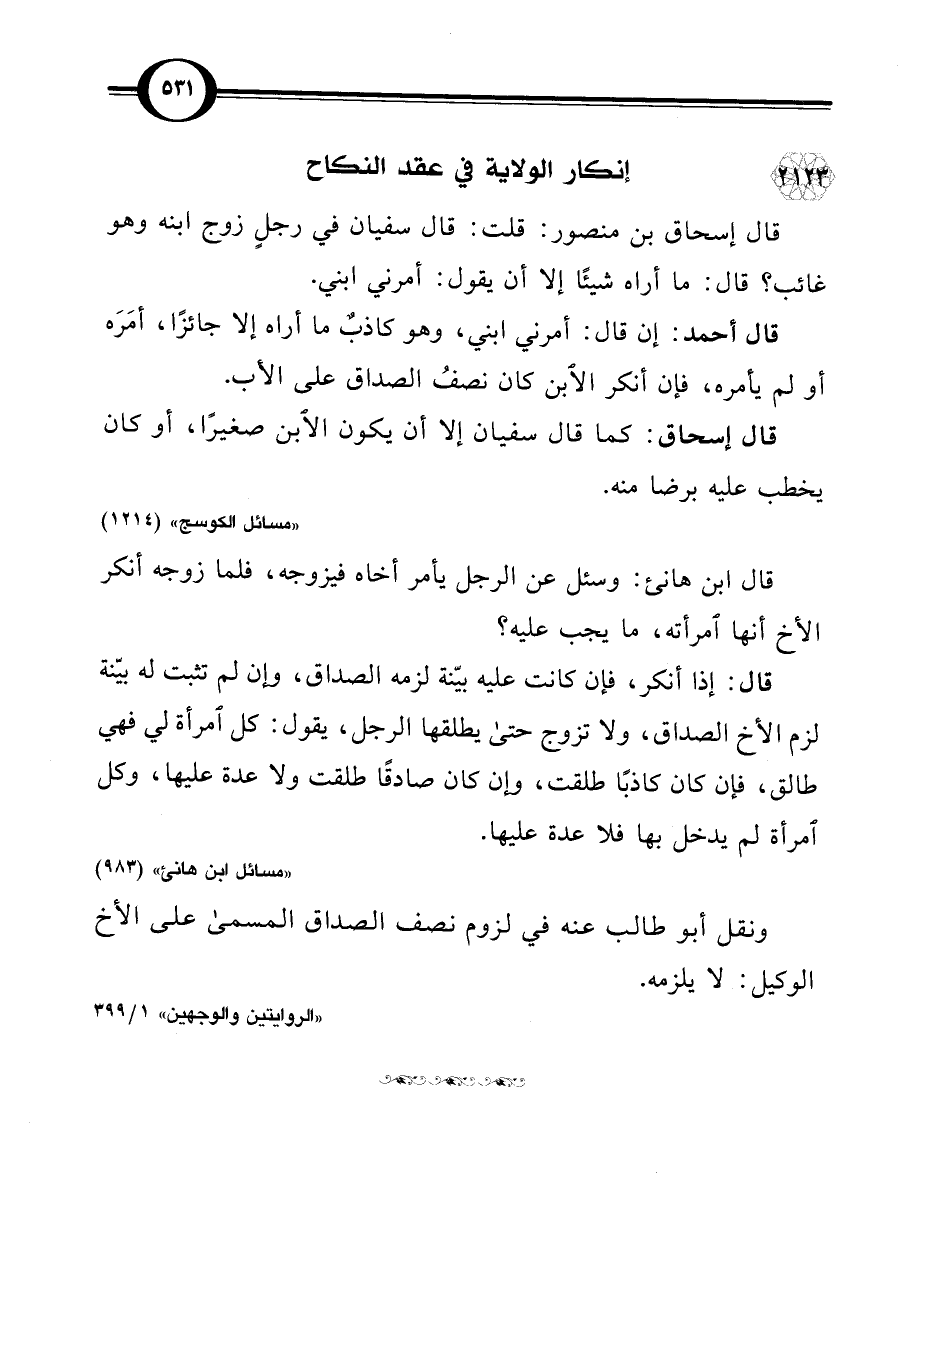 ٥٣١
٢١٢٣ إنكار الولاية في عقد النكاح
قال إسحاق بن منصور: قلت: قال سفيان في رجلٍ زوج ابنه وهو
غائب؟ قال: ما أراه شيئًا إلا أن يقول: أمرني ابني.
قال أحمد: إن قال: أمرني ابني، وهو كاذبٌ ما أراه إلا جائزًا، أمَرَه
أو لم يأمره، فإن أنكر الٱبن كان نصفُ الصداق على الأب.
قال إسحاق: كما قال سفيان إلا أن يكون الٱبن صغيرًا، أو كان
يخطب عليه برضا منه.
«مسائل الكوسج» (١٢١٤)
قال ابن هانئ: وسئل عن الرجل يأمر أخاه فيزوجه، فلما زوجه أنكر
الأخ أنها ٱمرأته، ما يجب عليه؟
قال: إذا أنكر، فإن كانت عليه بيّنة لزمه الصداق، وإن لم تثبت له بيّنة
لزم الأخ الصداق، ولا تزوج حتىٰ يطلقها الرجل، يقول: كل ٱمرأة لي فهي
طالق، فإن كان كاذبًا طلقت، وإن كان صادقًا طلقت ولا عدة عليها، وكل
ٱمرأة لم يدخل بها فلا عدة عليها.
«مسائل ابن هانئ» (٩٨٣)
ونقل أبو طالب عنه في لزوم نصف الصداق المسمىٰ على الأخ
الوكيل: لا يلزمه.
«الروايتين والوجهين» ١/ ٣٩٩